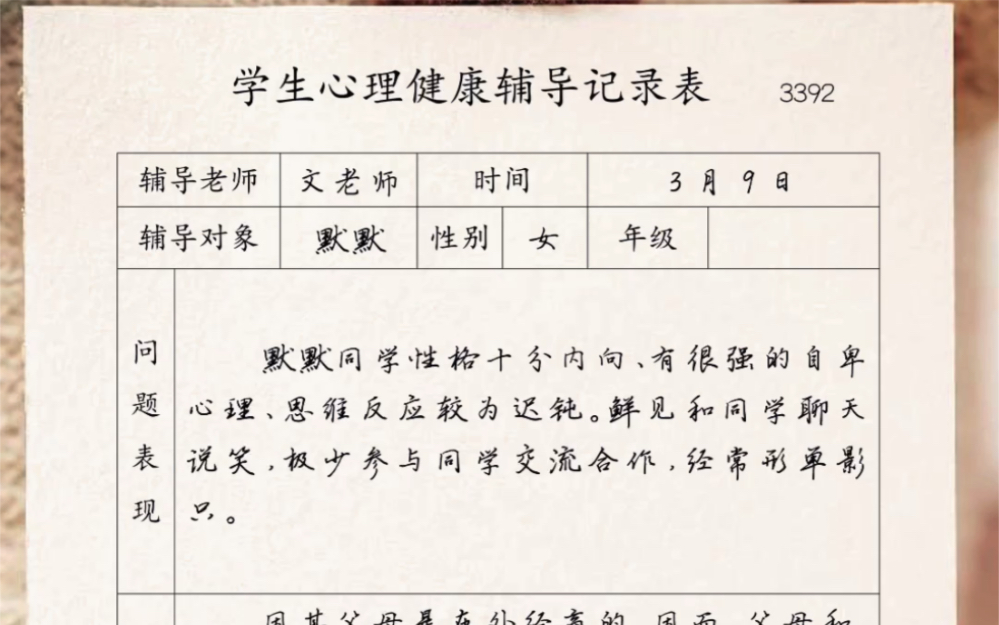 学生心理健康辅导记录表 3392
辅导老师 文老师 时间 3月9日
辅导对象 默默 性别 女 年级
问题表现
默默同学性格十分内向、有很强的自卑
心理、思维反应较为迟钝。鲜见和同学聊天
说笑,极少参与同学交流合作,经常形单影
只。
因其父母是在外经商的,因而,父母和